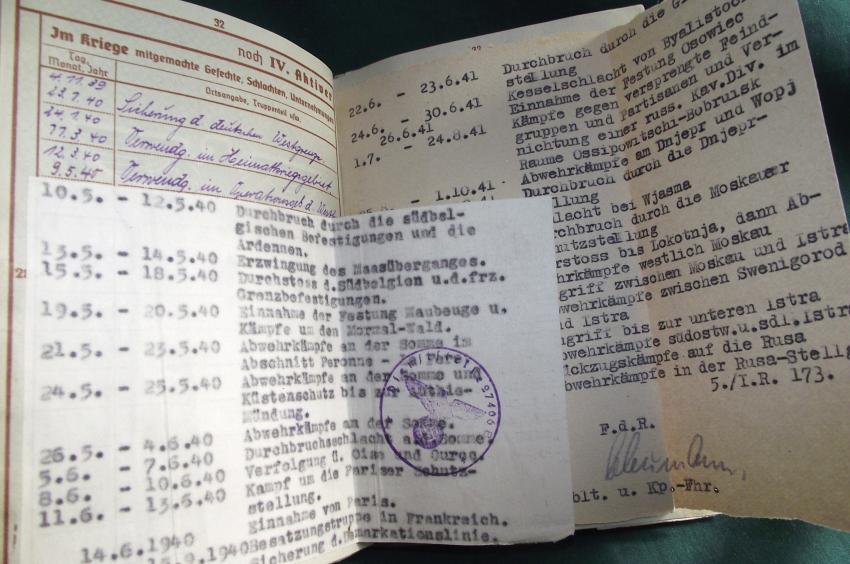 32
noch IV. Aktiver
Im Kriege mitgemachte Gefechte, Schlachten, Unternehmungen
Tag, Monat, Jahr
Ortsangabe, Truppenteil usw.
4.11.39
Sicherung d. deutschen Westgrenze
23.1.40
24.1.40
Verwendg. im Heimatkriegsgebiet
11.3.40
12.3.40
Verwendg. im Operationsgeb. d.
9.5.40
21
10.5. - 12.5.40 Durchbruch durch die südbel-
gischen Befestigungen und die
Ardennen.
13.5. - 14.5.40 Erzwingung des Maasüberganges.
15.5. - 18.5.40 Durchstoss d.Südbelgien u.d.frz.
Grenzbefestigungen.
19.5. - 20.5.40 Einnahme der Festung Maubeuge u.
Kämpfe um den Mormal-Wald.
21.5. - 23.5.40 Abwehrkämpfe an der Somme im
Abschnitt Peronne -
24.5. - 25.5.40 Abwehrkämpfe an der Somme und
Küstenschutz bis zur Authie-
Mündung.
26.5. - 4.6.40 Abwehrkämpfe an der Somme.
5.6. - 7.6.40 Durchbruchsschlacht a.d. Somme
8.6. - 10.6.40 Verfolgung ü. Oise und Ourcq.
11.6. - 13.6.40 Kampf um die Pariser Schutz-
stellung.
14.6.1940 Einnahme von Paris.
Besatzungstruppe in Frankreich.
Sicherung d.Demarkationslinie.
97406
22.6. - 23.6.41 Durchbruch durch die
stellung
24.6. - 30.6.41 Kesselschlacht von Byalistock
26.6.41 Einnahme der Festung Osowiec
1.7. - 24.8.41 Kämpfe gegen versprengte Feind-
gruppen und Partisanen und Ver-
nichtung einer russ. Kav.Div. im
Raume Ossipowitschi-Bobruisk
Abwehrkämpfe am Dnjepr und Wopj
- 1.10.41 Durchbruch durch die Dnjepr-
stellung
bei Wjasma
durch die Moskauer
bis Lokotnja, dann Ab-
westlich Moskau
zwischen Moskau und Istra
zwischen Swenigorod
Istra
bis zur unteren Istra
südostw.u.sdl.Istra
auf die Rusa
in der Rusa-Stellg
5./I.R. 173.
F.d.R.
u. Kp.-Fhr.